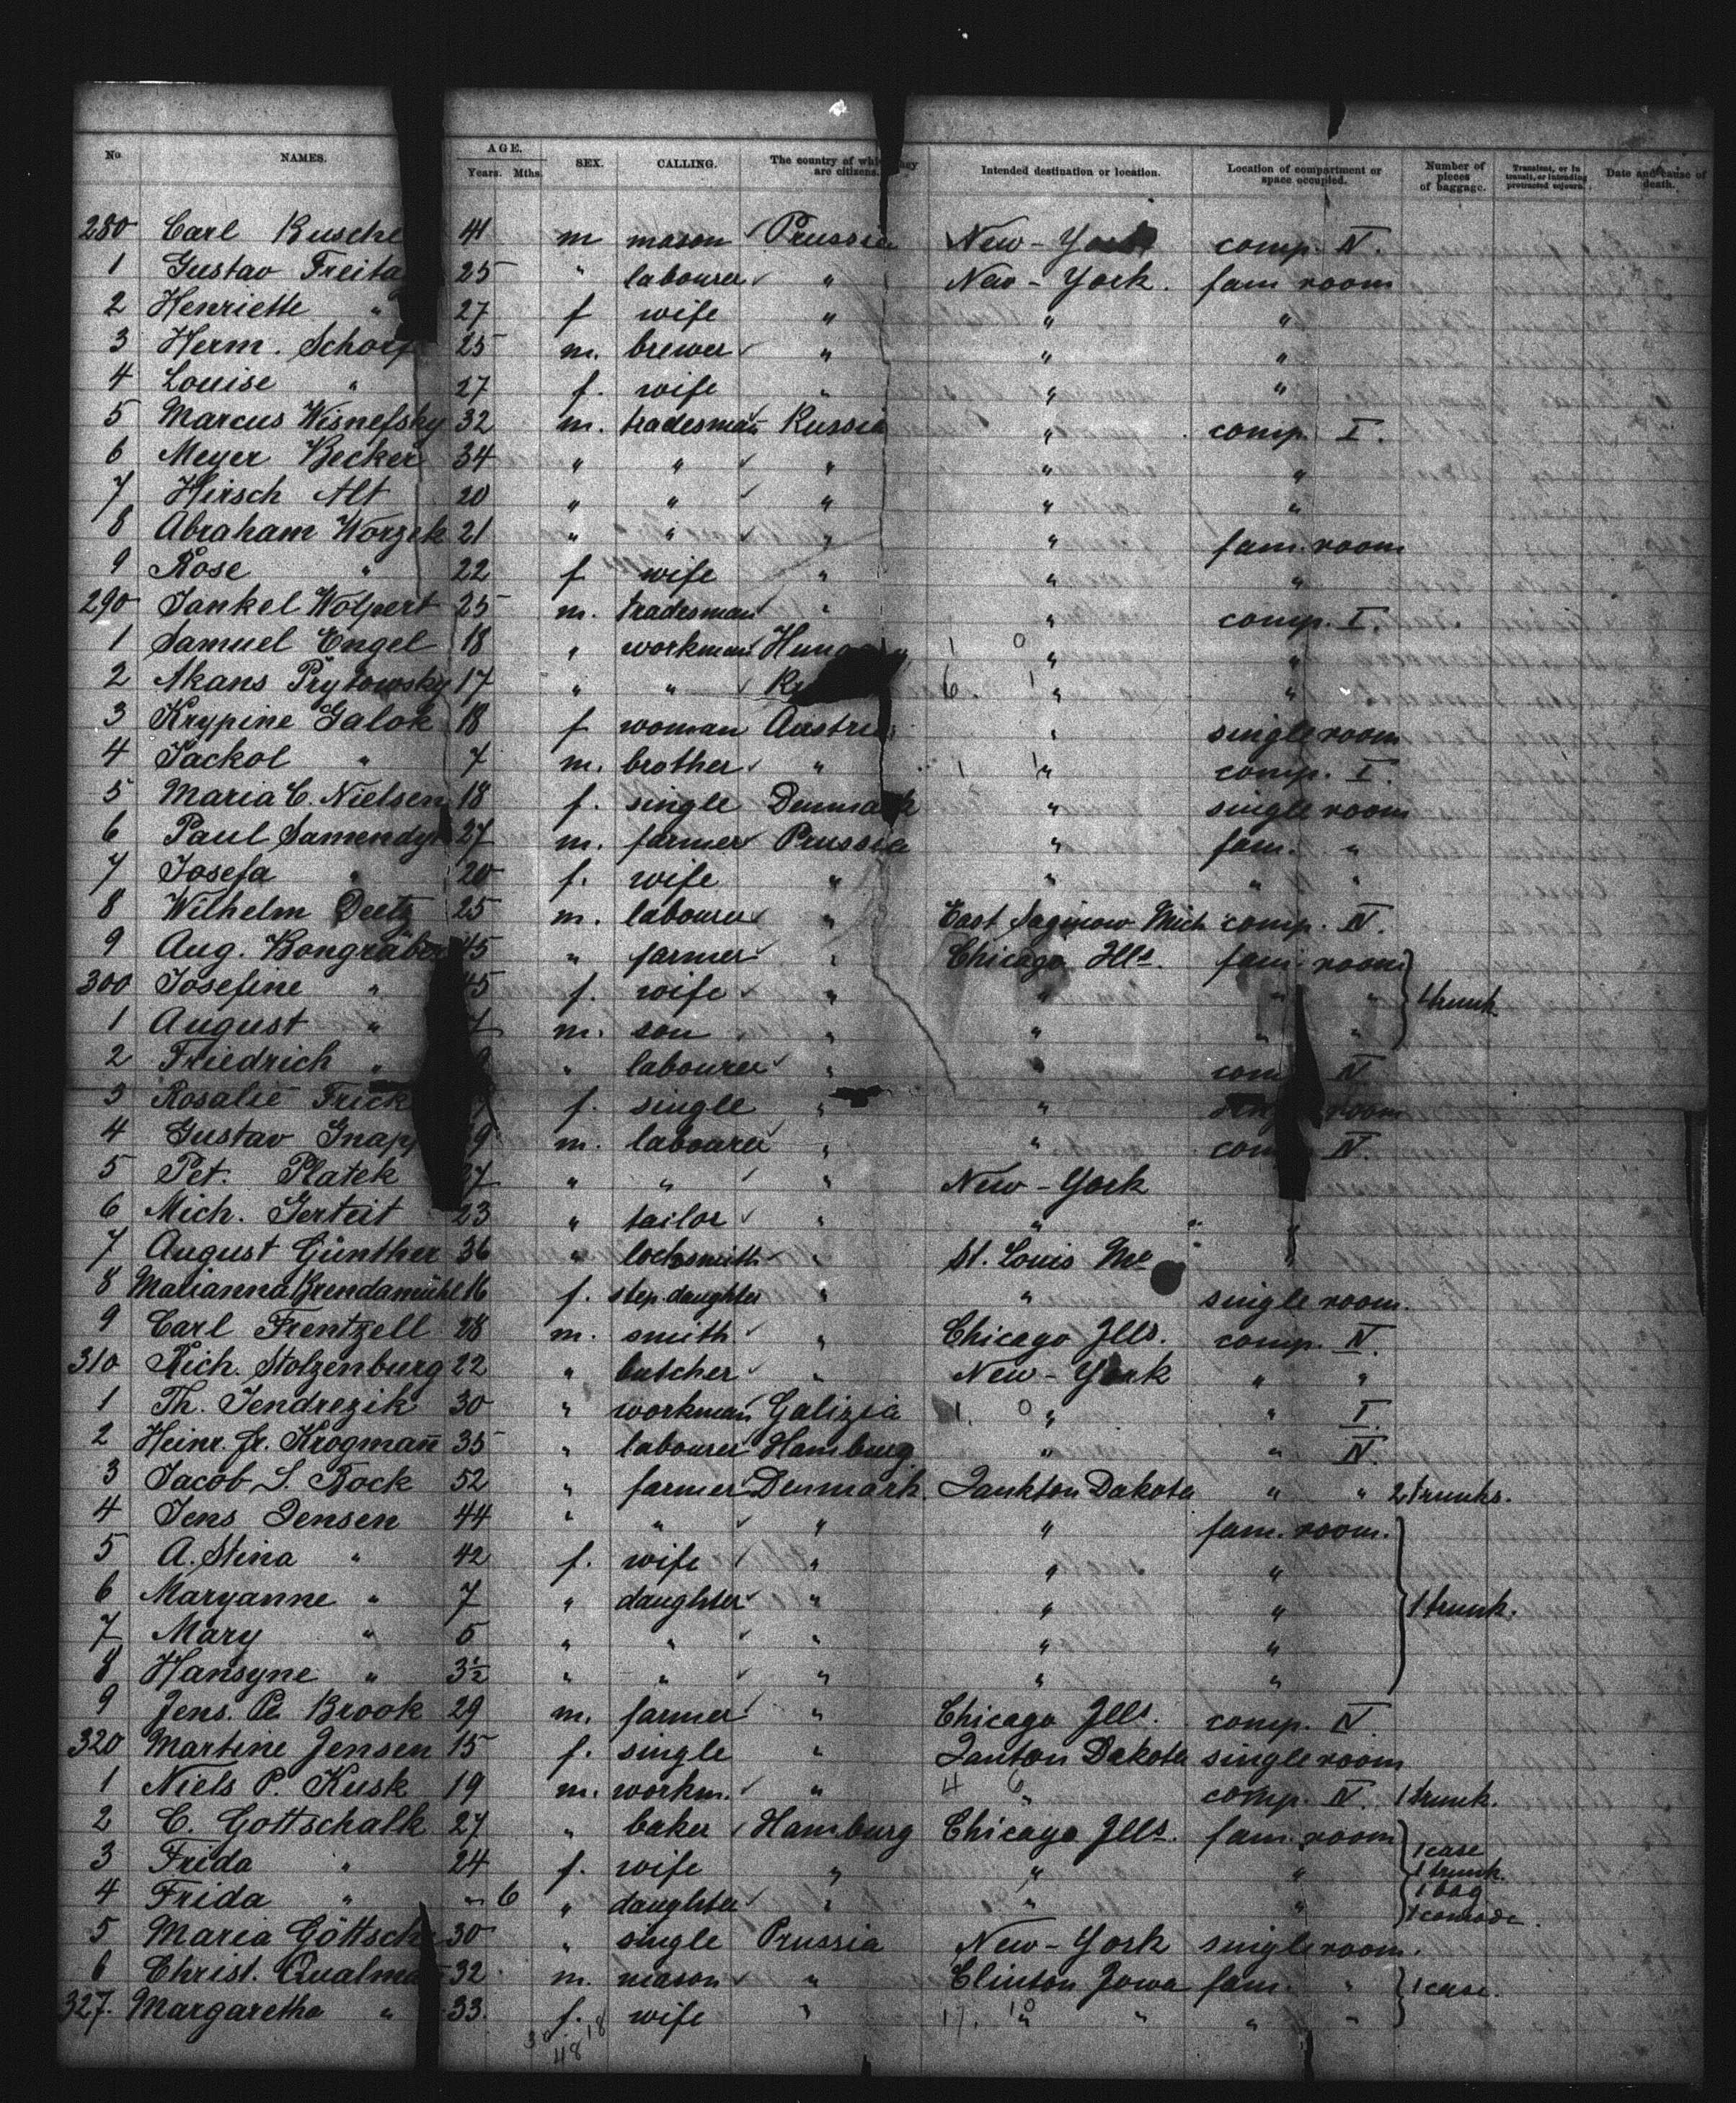 No NAMES. AGE. Years. Mths. SEX. CALLING. The country of which they are citizens. Intended destination or location. Location of compartment or space occupied. Number of pieces of baggage. Transient, or in transit, or intending protracted sojourn. Date and cause of death.
280 Carl Busche 41 m mason Prussia New-York comp. IV.
1 Gustav Freita 25 " labourer " New-York. fam room
2 Henriette " 27 f wife " " "
3 Herm. Schorf 25 m. brewer " " "
4 Louise " 27 f. wife " " "
5 Marcus Wisnefsky 32 m. tradesman Russia " comp. I.
6 Meyer Becker 34 " " " " "
7 Hirsch Alt 20 " " " " "
8 Abraham Worzek 21 " " " " fam. room
9 Rose " 22 f wife " " "
290 Jankel Wolpert 25 m. tradesman " " comp. I.
1 Samuel Engel 18 " workman Hungary " "
2 Akans Prytowsky 17 " " " "
3 Krypine Galok 18 f woman Austria " single room
4 Jackol " 7 m. brother " " comp. I.
5 Maria C. Nielsen 18 f. single Denmark " single room
6 Paul Samendy 27 m. farmer Prussia " fam. "
7 Josefa " 20 f. wife " " " "
8 Wilhelm Deetz 25 m. labourer " East Saginow Mich comp. IV.
9 Aug. Bongräber 45 " farmer " Chicago Ills. fam. room
300 Josefine " 45 f. wife " " " " 1 trunk.
1 August " 7 m. son " " " "
2 Friedrich " " labourer " " comp. IV
3 Rosalie Frick f. single " " room
4 Gustav Gnapp 9 m. labourer " " com IV.
5 Pet. Platek 27 " " " New-York
6 Mich. Gerteit 23 " tailor " " " "
7 August Günther 36 " locksmith " St. Louis Mo " "
8 Marianna Brendamühl 16 f. step.daughter " " single room.
9 Carl Frentzell 28 m. smith " Chicago Ills. comp. IV.
310 Rich. Stolzenburg 22 " butcher " New-York " "
1 Th. Jendrezik 30 " workman Galizia " " I.
2 Heinr. Fr. Krogmann̄ 35 " labourer Hamburg " " IV.
3 Jacob S. Bock 52 " farmer Denmark. Jankton Dakota " " 2 trunks.
4 Jens Jensen 44 " " " " fam. room.
5 A. Stina " 42 f. wife " " "
6 Maryanne " 7 " daughter " " " 1 trunk.
7 Mary " 5 " " " " "
8 Hansyne " 3½ " " " " "
9 Jens. Pe Brook 29 m. farmer " Chicago Ills. comp. IV.
320 Martine Jensen 15 f. single " Janton Dakota single room
1 Niels P. Kusk 19 m. workm. " 4 6 " comp. IV. 1 trunk.
2 C. Gottschalk 27 " baker Hamburg Chicago Ills. fam. room 1 case
3 Frida " 24 f. wife " " " 1 trunk
4 Frida " " 6 " daughter " " " 1 bag 1 comode.
5 Maria Göttsch 30 " single Prussia New-York single room.
6 Christ. Qualma 32 m. mason " Clinton Jowa fam. " 1 case.
327. Margaretha " 33. f. wife " " " " "
18
48